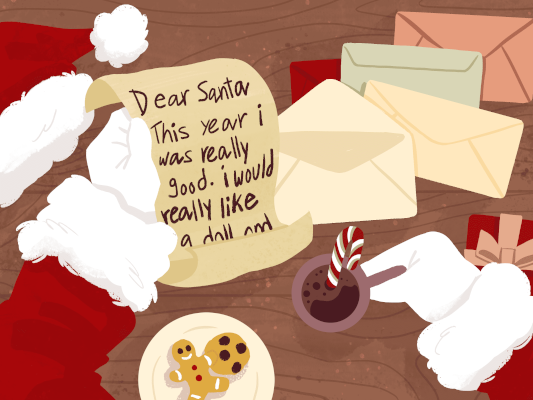 Dear Santa
This year i
was really
good. i would
really like
a doll and